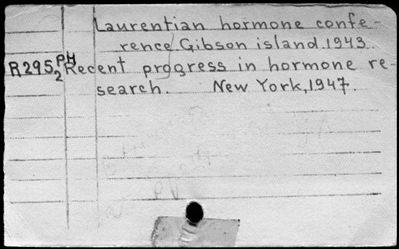 Laurentian hormone confe-
rence Gibson island 1943.
R295 PH
2 Recent progress in hormone re-
search. New York, 1947.